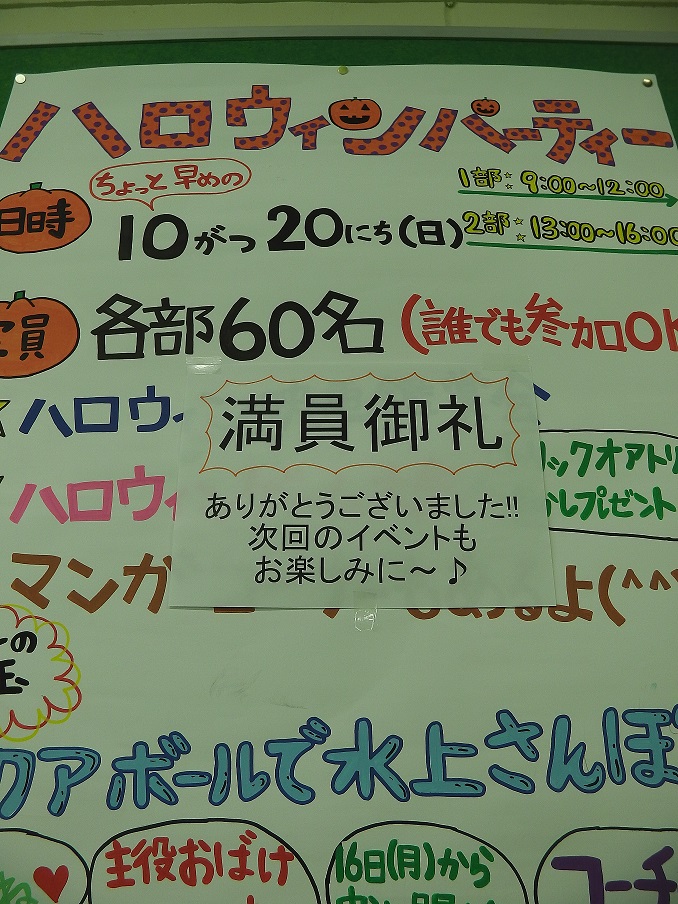 ハロウィンパーティー
ちょっと早めの
日時
10がつ20にち(日)
1部☆9:00~12:00
2部☆13:00~16:00
員
各部60名(誰でも参加OK
☆ハロウィ
ハロウィ
満員御礼
ありがとうございました!!
次回のイベントも
お楽しみに~♪
リックオアトリ
かしプレゼント
マンガ
よ(^^
の
玉
クアボールで水上さんぽ
ね♥
主役おばけ
16日(月)から
コーチ